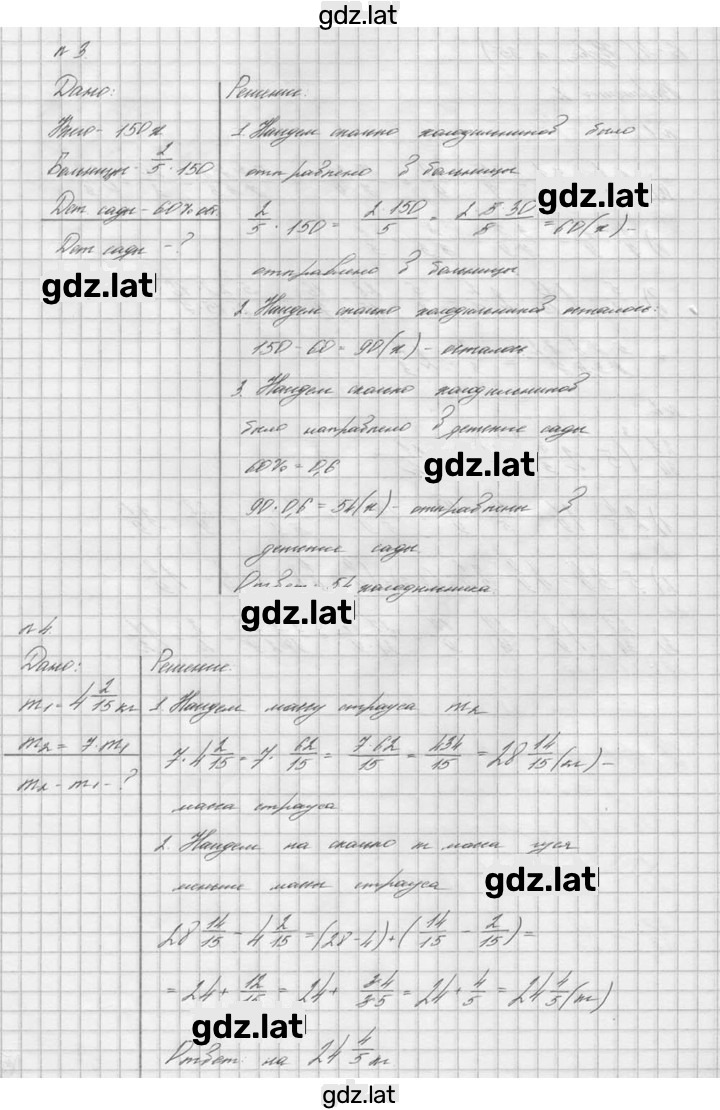 gdz.lat
№3.
Дано:
Всего - 150 х
Больницы - 2/5 · 150
Дет. сады - 60% ост.
Дет. сады - ?
gdz.lat
Решение:
1. Найдем сколько холодильников было
отправлено в больницы
gdz.lat
2/5 · 150 = 2·150/5 = 2·5·30/5 = 60(х) -
отправлено в больницы
2. Найдем сколько холодильников осталось:
150 - 60 = 90(х) - осталось
3. Найдем сколько холодильников
было направлено в детские сады
60% = 0,6
gdz.lat
90 · 0,6 = 54(х) - отправлены в
детские сады.
Ответ: 54 холодильника
gdz.lat
№4.
Дано:
m₁ = 4 2/15 кг
m₂ = 7·m₁
m₂ - m₁ - ?
Решение.
1. Найдем массу страуса m₂
7·4 2/15 = 7· 62/15 = 7·62/15 = 434/15 = 28 14/15 (кг) -
масса страуса
2. Найдем на сколько m масса гуся
меньше массы страуса
gdz.lat
28 14/15 - 4 2/15 = (28-4)+(14/15 - 2/15) =
= 24 + 12/15 = 24 + 3·4/3·5 = 24 + 4/5 = 24 4/5 (кг)
gdz.lat
Ответ: на 24 4/5 кг
gdz.lat